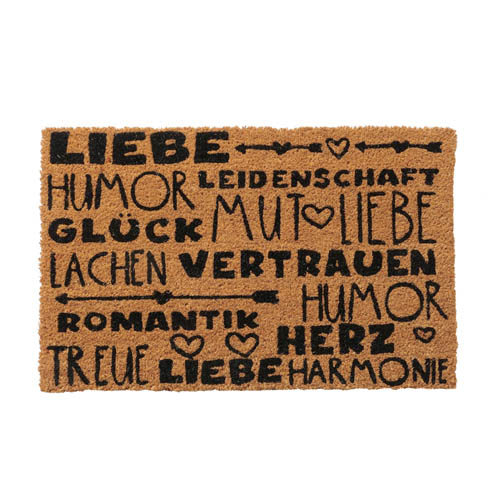 LIEBE
HUMOR LEIDENSCHAFT
GLÜCK MUT LIEBE
LACHEN VERTRAUEN
HUMOR
ROMANTIK HERZ
TREUE LIEBE HARMONIE